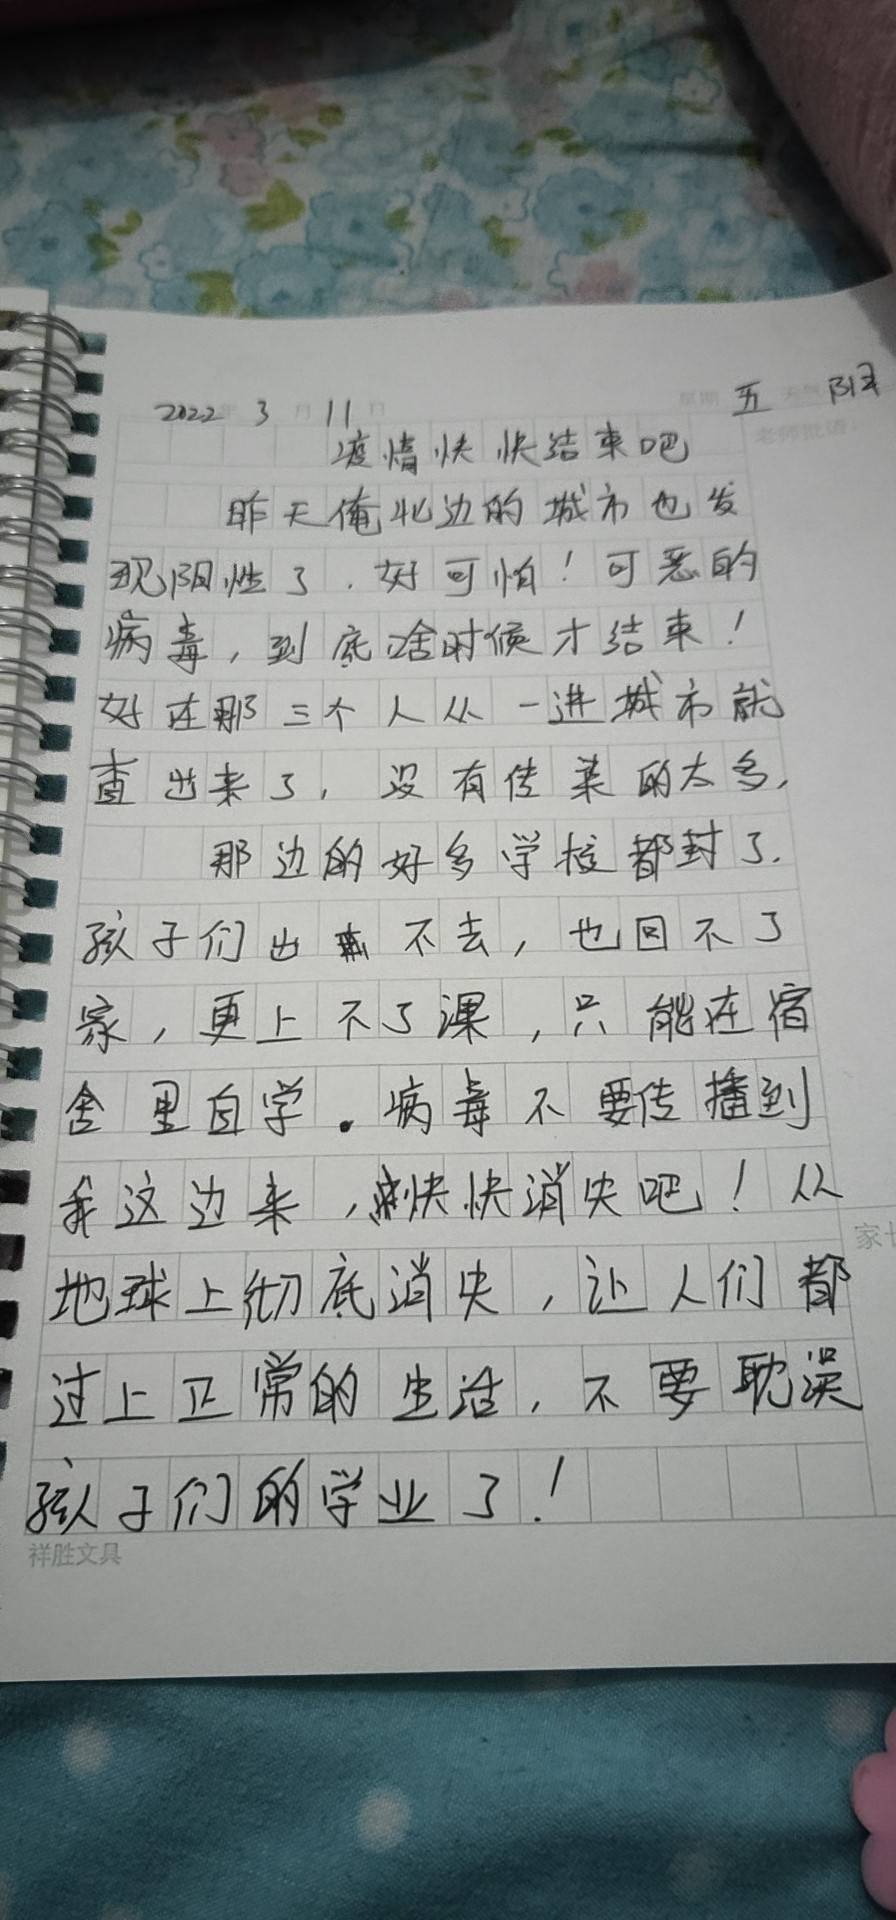 2022年 3月 11日 星期五 天气 阴
疫情快快结束吧
老师批语:
昨天俺北边的城市也发
现阳性了.好可怕!可恶的
病毒,到底啥时候才结束!
好在那三个人从一进城市就
查出来了,没有传染的太多,
那边的好多学校都封了.
孩子们出不去,也回不了
家,更上不了课,只能在宿
舍里自学.病毒不要传播到
我这边来,快快消失吧!从
家长
地球上彻底消失,让人们都
过上正常的生活,不要耽误
孩子们的学业了!
祥胜文具